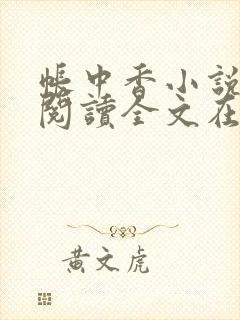 帳中香小說
閱讀全文在
黃文虎